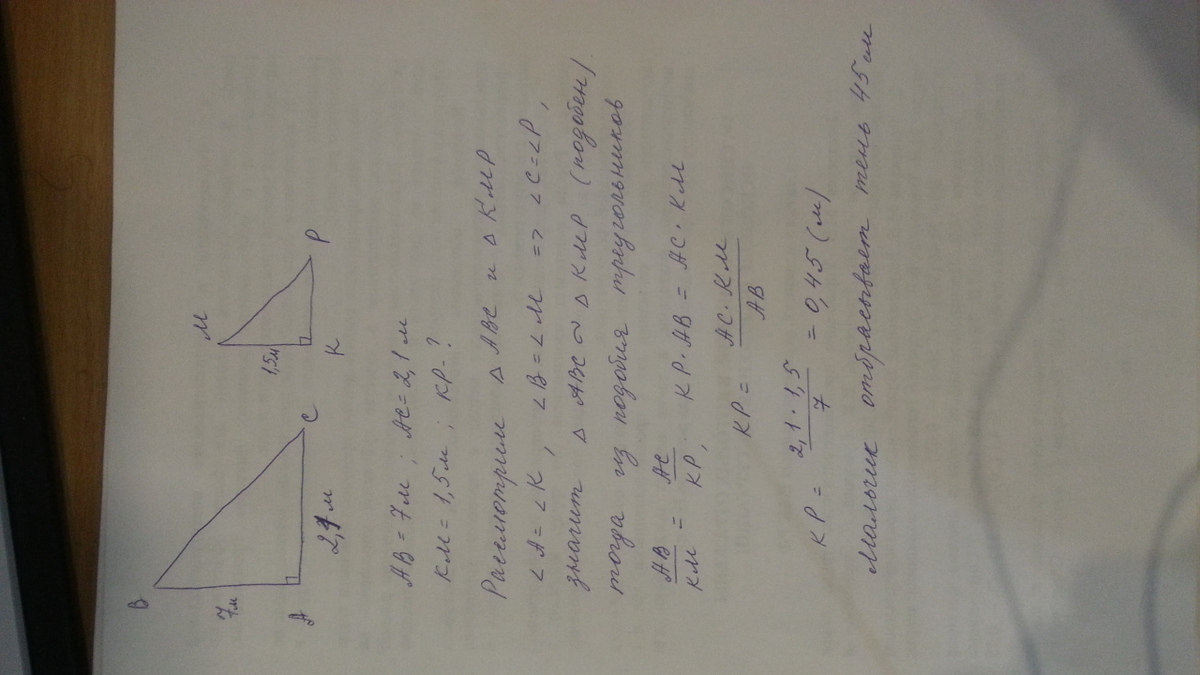 B
M
7м
1,5м
A
C
K
P
2,1 м
AB = 7м ; AC = 2,1 м
KM = 1,5м ; KP - ?
Рассмотрим △ ABC и △ KMP
∠A = ∠K , ∠B = ∠M => ∠C = ∠P,
значит △ ABC ~ △ KMP (подобен).
тогда из подобия треугольников
AB/KM = AC/KP, KP·AB = AC·KM
KP = AC·KM/AB
KP = 2,1·1,5/7 = 0,45 (м)
Мальчик отбрасывает тень 45 см